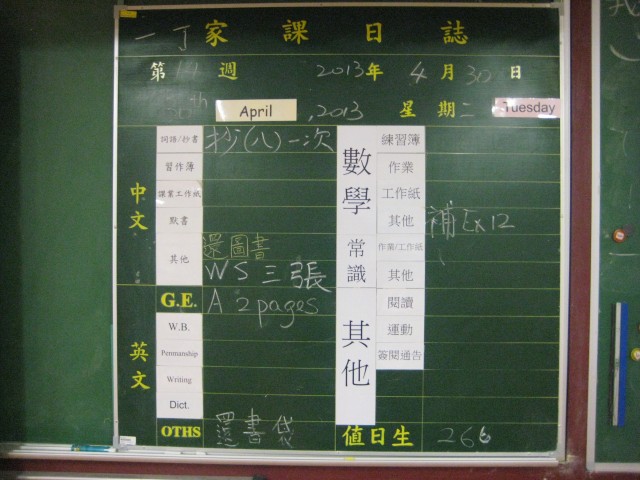 一丁家課日誌
第14週 2013年 4月30日
30th April ,2013 星期二 Tuesday
中文
詞語/抄書 抄(八)一次
習作簿
課業工作紙
默書
其他 還圖書
WS三張
英文
G.E. A 2 pages
W.B.
Penmanship
Writing
Dict.
OTHS 還書袋
數學
練習簿
作業
工作紙
其他 補Ex12
常識
作業/工作紙
其他
其他
閱讀
運動
簽閱通告
值日生 266